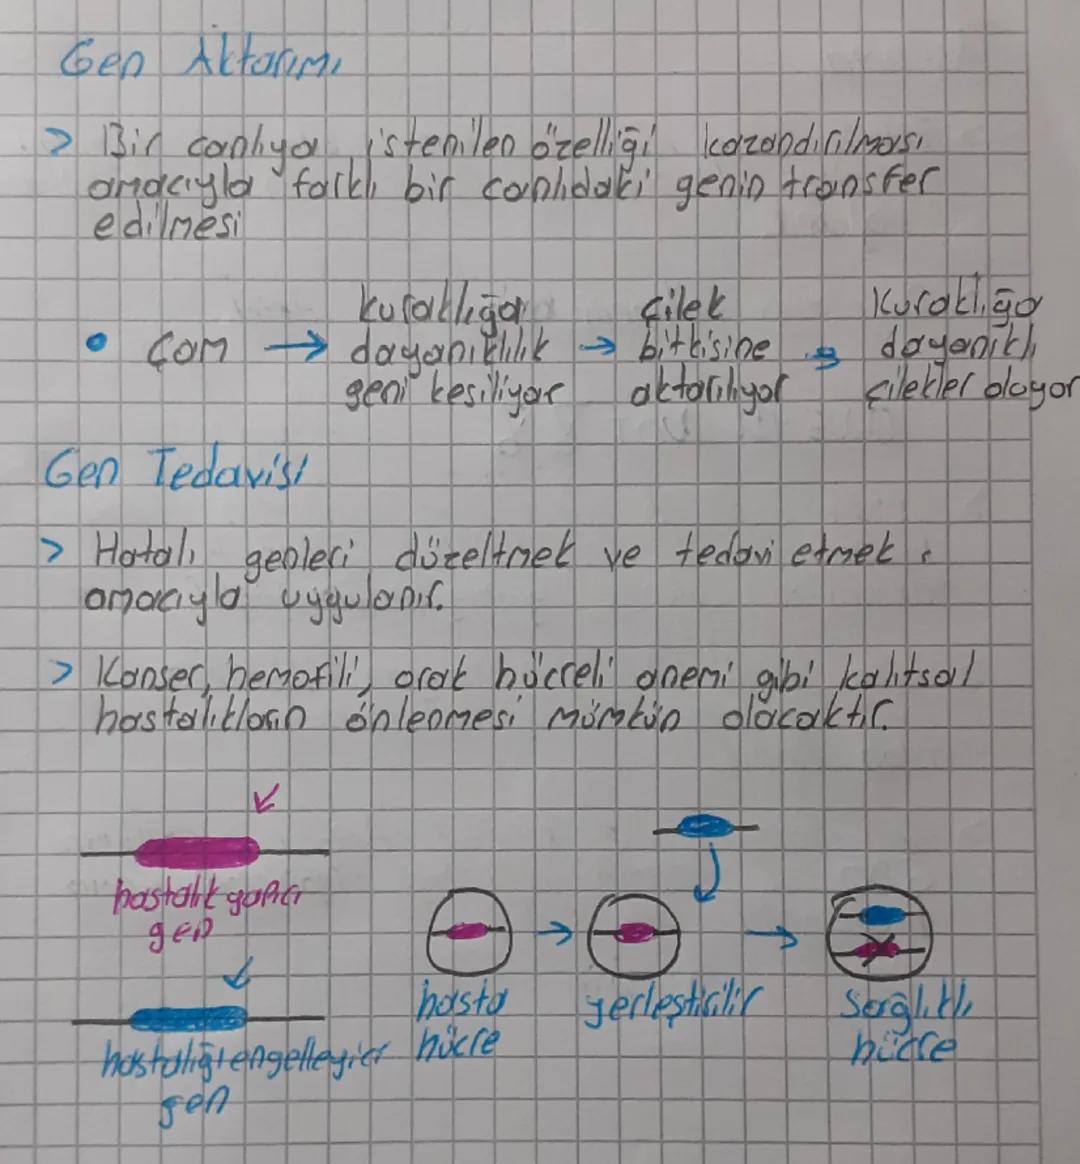 Gen Aktarımı
> Bir canlıya istenilen özelliği kazandırılması
amacıyla farklı bir canlıdaki genin transfer
edilmesi
• Çam → kuraklığa dayanıklılık geni kesiliyor → çilek bitkisine aktarılıyor → Kuraklığa dayanıklı çilekler oluyor
Gen Tedavisi
> Hatalı genleri düzeltmek ve tedavi etmek
amacıyla uygulanır.
> Kanser, hemofili, orak hücreli anemi gibi kalıtsal
hastalıkların önlenmesi mümkün olacaktır.
hastalık yapıcı
gen
hastalığı engelleyici
gen
hasta
hücre
yerleştirilir
Sağlıklı
hücre